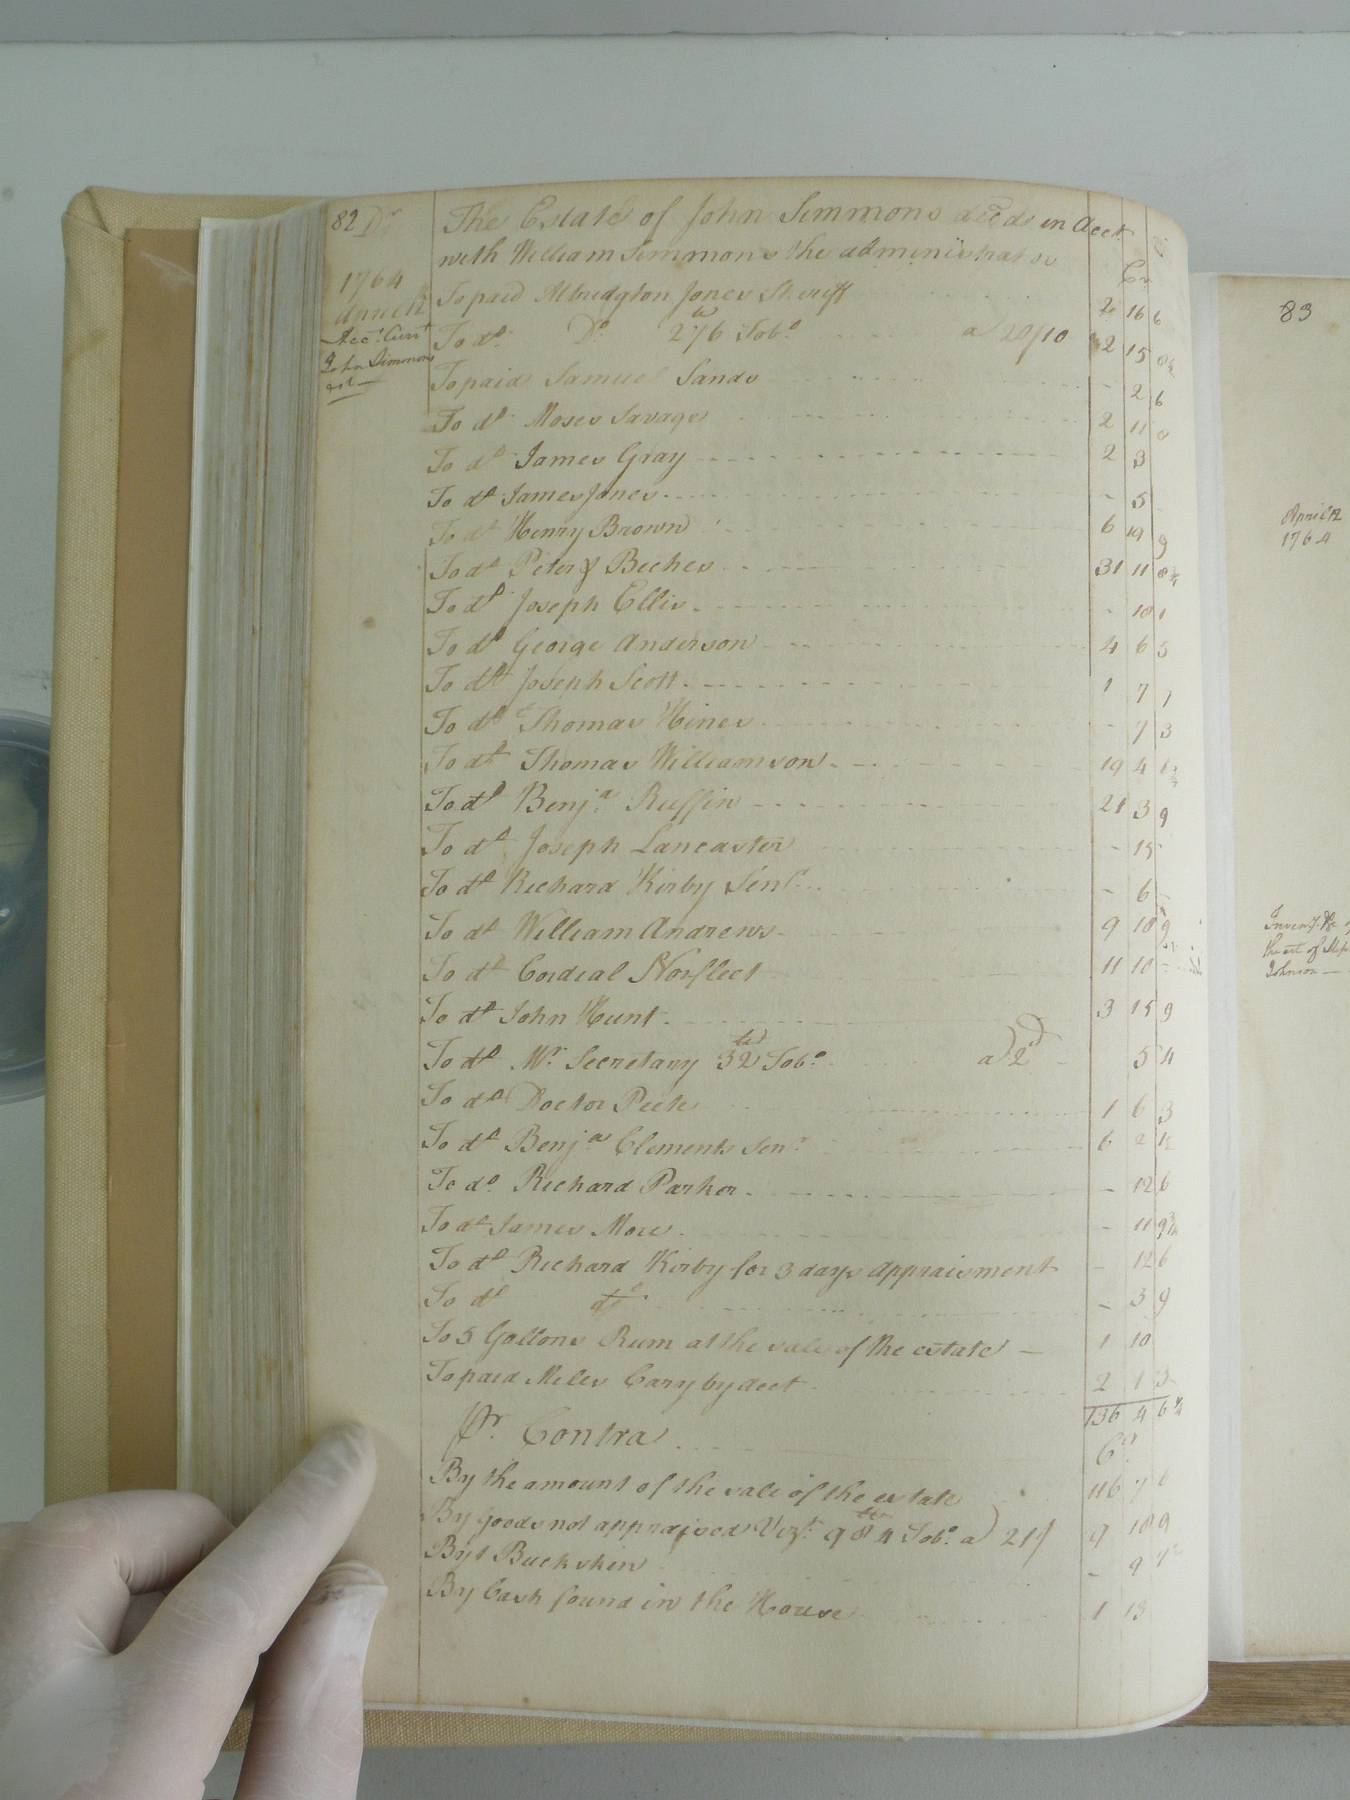 82 Dr The Estate of John Simmons decds in Acct
with William Simmons the administrator
Cr
1764
April 12
Acct. Curt
John Simmons
est —
To paid Albridgton Jones Sheriff 2 16 6
To do. Do. 276 lb Tobo. a 20/10 2 15
To paid Samuel Sands - 2 6
To do. Moses Savage 2 11 0
To do. James Gray 2 3
To do. James Jones - 5
To do. Henry Brown 6 19 9
To do. Peter Beches 31 11 8 3/4
To do. Joseph Ellis - 18 1
To do. George Anderson 4 6 5
To do. Joseph Scott 1 7 1
To do. Thomas Hines - 7 3
To do. Thomas Williamson 19 4
To do. Benja. Ruffin 21 3 9
To do. Joseph Lancaster - 15
To do. Richard Kirby Senr. - 6 -
To do. William Andrews 9 18 9
To do. Cordial Norfleet 11 10 -
To do. John Hunt 3 15 9
To do. Mr. Secretary 32 lb Tobo. a 2d 5 4
To do. Doctor Peete 1 6 3
To do. Benja Clements Senr. 6 2
To do. Richard Parker - 12 6
To do. James More - 11 9 3/4
To do. Richard Kirby for 3 days appraisment - 12 6
To do. do. - 3 9
To 5 Gallons Rum at the sale of the estate — 1 10
To paid Miles Cary by acct 2 1 3
136 4 6 1/4
Pr. Contra Cr
By the amount of the sale of the estate 116 7 6
By goods not appraised Vizt. 984 lb Tobo. a 21/ 9 18 9
By 1 Buckskin - 9
By Cash found in the House 1 13
83
April 12
1764
Inventy. &c of
the est of
Johnson —